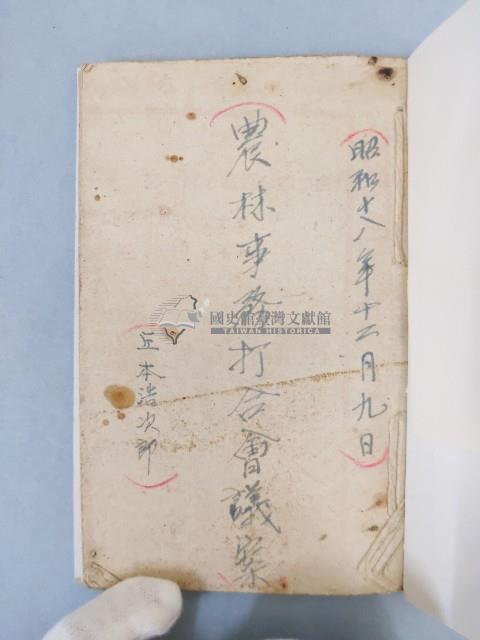 昭和十八年十二月九日
農林事務打合會議案
丘本浩次郎
國史館臺灣文獻館
TAIWAN HISTORICA